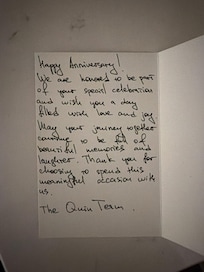 Happy Anniversary!
We are honored to be part
of your special celebration
and wish you a day
filled with love and joy
May your journey together
continue to be full of
beautiful memories and
laughter. Thank you for
choosing to spend this
meaningful occasion with
us.
The Quin Team.